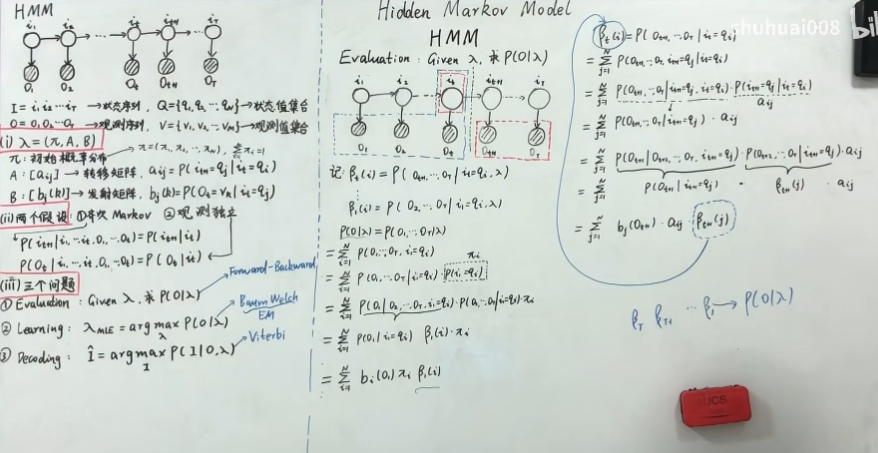 HMM
i₁ i₂ iₜ iₜ₊₁ i_T
O₁ O₂ Oₜ Oₜ₊₁ O_T
I = i₁, i₂ ⋯ i_T → 状态序列, Q = {q₁, q₂ ⋯ q_N} → 状态值集合
O = O₁, O₂ ⋯ O_T → 观测序列, V = {v₁, v₂ ⋯ v_M} → 观测值集合
(i) λ = (π, A, B)
π: 初始概率分布 → π = (π₁, π₂, ⋯, π_N), Σπᵢ = 1
A: [aᵢⱼ] → 转移矩阵, aᵢⱼ = P(iₜ₊₁ = qⱼ | iₜ = qᵢ)
B: [bⱼ(k)] → 发射矩阵, bⱼ(k) = P(Oₜ = v_k | iₜ = qⱼ)
(ii) 两个假设: ① 齐次 Markov ② 观测独立
P(iₜ₊₁ | i₁, ⋯ iₜ, O₁, ⋯ Oₜ) = P(iₜ₊₁ | iₜ)
P(Oₜ | i₁, ⋯ iₜ, O₁, ⋯ Oₜ) = P(Oₜ | iₜ)
(iii) 三个问题
Forward-Backward
① Evaluation: Given λ, 求 P(O|λ)
Baum Welch
EM
② Learning: λ_MLE = arg max_λ P(O|λ)
Viterbi
③ Decoding: Î = arg max_I P(I|O, λ)
Hidden Markov Model
HMM
Evaluation: Given λ, 求 P(O|λ)
i₁ i₂ iₜ iₜ₊₁ i_T
O₁ O₂ Oₜ Oₜ₊₁ O_T
记: βₜ(i) = P(Oₜ₊₁, ⋯ O_T | iₜ = qᵢ, λ)
β₁(i) = P(O₂, ⋯ O_T | i₁ = qᵢ, λ)
P(O|λ) = P(O₁, ⋯ O_T | λ)
= Σᵢ₌₁ᴺ P(O₁, ⋯ O_T, i₁ = qᵢ)
πᵢ
= Σᵢ₌₁ᴺ P(O₁, ⋯ O_T | i₁ = qᵢ) · P(i₁ = qᵢ)
= Σᵢ₌₁ᴺ P(O₁ | O₂, ⋯ O_T, i₁ = qᵢ) · P(O₂, ⋯ O_T | i₁ = qᵢ) · πᵢ
= Σᵢ₌₁ᴺ P(O₁ | i₁ = qᵢ) β₁(i) · πᵢ
= Σᵢ₌₁ᴺ bᵢ(O₁) πᵢ β₁(i)
shuhuai008
βₜ(i) = P(Oₜ₊₁, ⋯ O_T | iₜ = qᵢ)
= Σⱼ₌₁ᴺ P(Oₜ₊₁, ⋯ O_T, iₜ₊₁ = qⱼ | iₜ = qᵢ)
= Σⱼ₌₁ᴺ P(Oₜ₊₁, ⋯ O_T | iₜ₊₁ = qⱼ, iₜ = qᵢ) · P(iₜ₊₁ = qⱼ | iₜ = qᵢ)
aᵢⱼ
= Σⱼ₌₁ᴺ P(Oₜ₊₁, ⋯ O_T | iₜ₊₁ = qⱼ) · aᵢⱼ
= Σⱼ₌₁ᴺ P(Oₜ₊₁ | Oₜ₊₂, ⋯ O_T, iₜ₊₁ = qⱼ) · P(Oₜ₊₂, ⋯ O_T | iₜ₊₁ = qⱼ) · aᵢⱼ
= Σⱼ₌₁ᴺ P(Oₜ₊₁ | iₜ₊₁ = qⱼ) · βₜ₊₁(j) · aᵢⱼ
= Σⱼ₌₁ᴺ bⱼ(Oₜ₊₁) · aᵢⱼ · βₜ₊₁(j)
β_T β_T₋₁ ⋯ β₁ → P(O|λ)